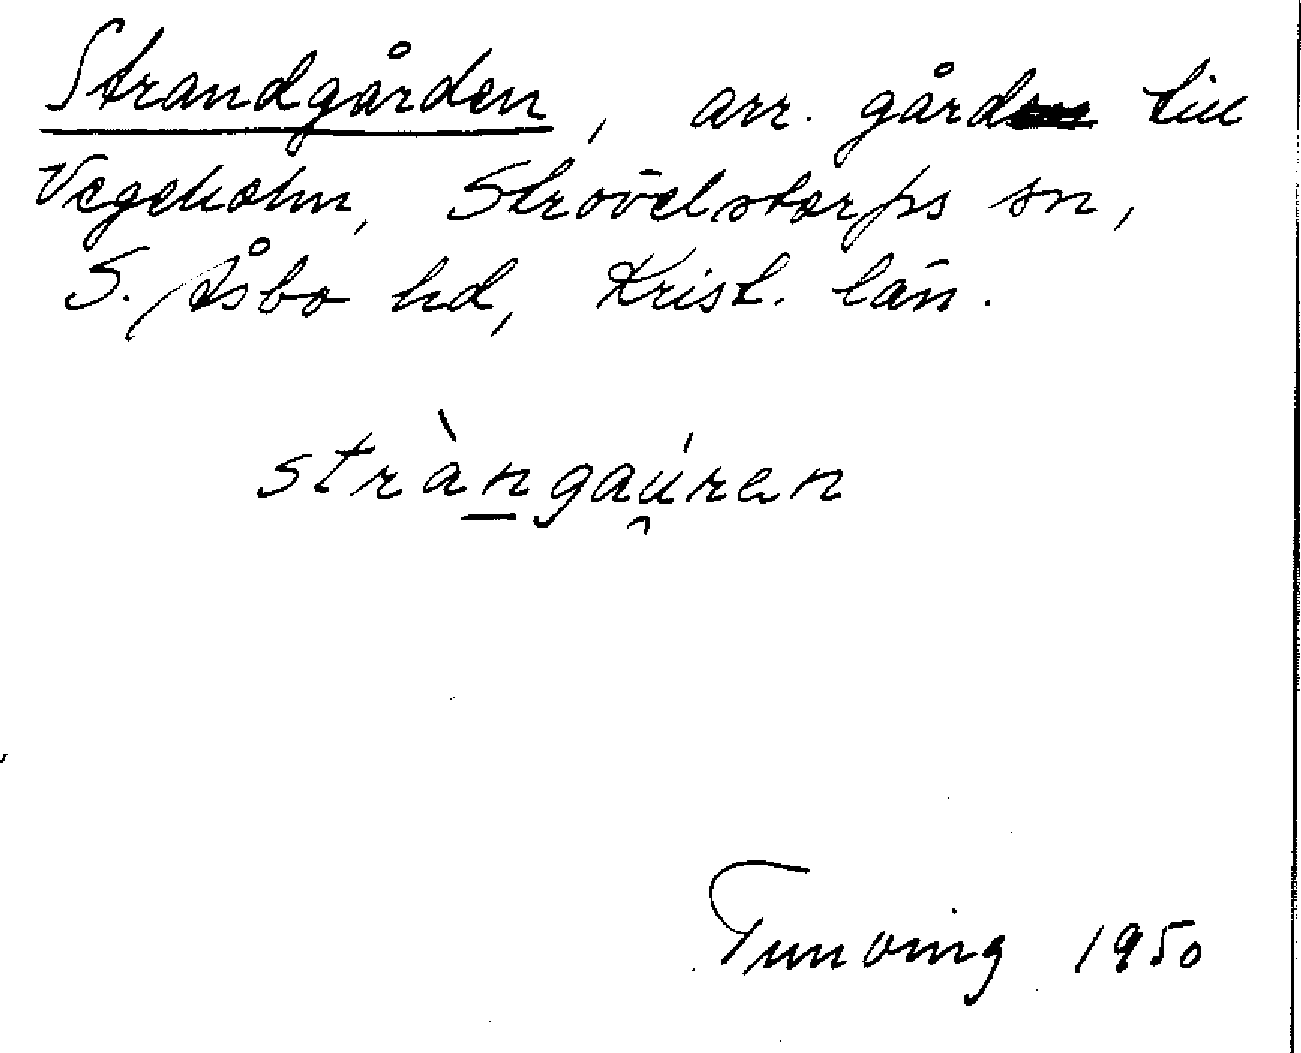 Strandgården, arr. gård till
Vegeholm, Strövelstorps sn,
S. Åsbo hd, Krist. län.
stràngaú̯ren
Tunving 1950